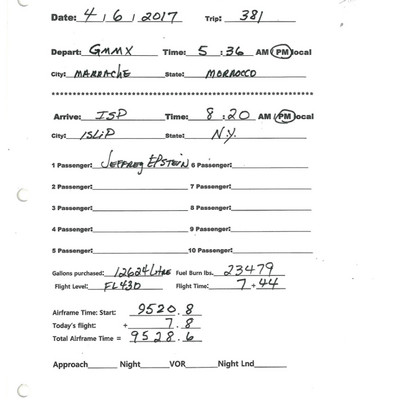 Date: 4/6/2017 Trip: 381
Depart: GMMX Time: 5:36 AM PM local
City: MARRACHE State: MORROCO
Arrive: ISP Time: 8:20 AM PM local
City: ISLIP State: N.Y.
1 Passenger: JEFFREY EPSTEIN 6 Passenger:
2 Passenger: 7 Passenger:
3 Passenger: 8 Passenger:
4 Passenger: 9 Passenger:
5 Passenger: 10 Passenger:
Gallons purchased: 12624 Litre Fuel Burn lbs. 23479
Flight Level: FL430 Flight Time: 7+44
Airframe Time: Start: 9520.8
Today's flight: + 7.8
Total Airframe Time = 9528.6
Approach Night VOR Night Lnd